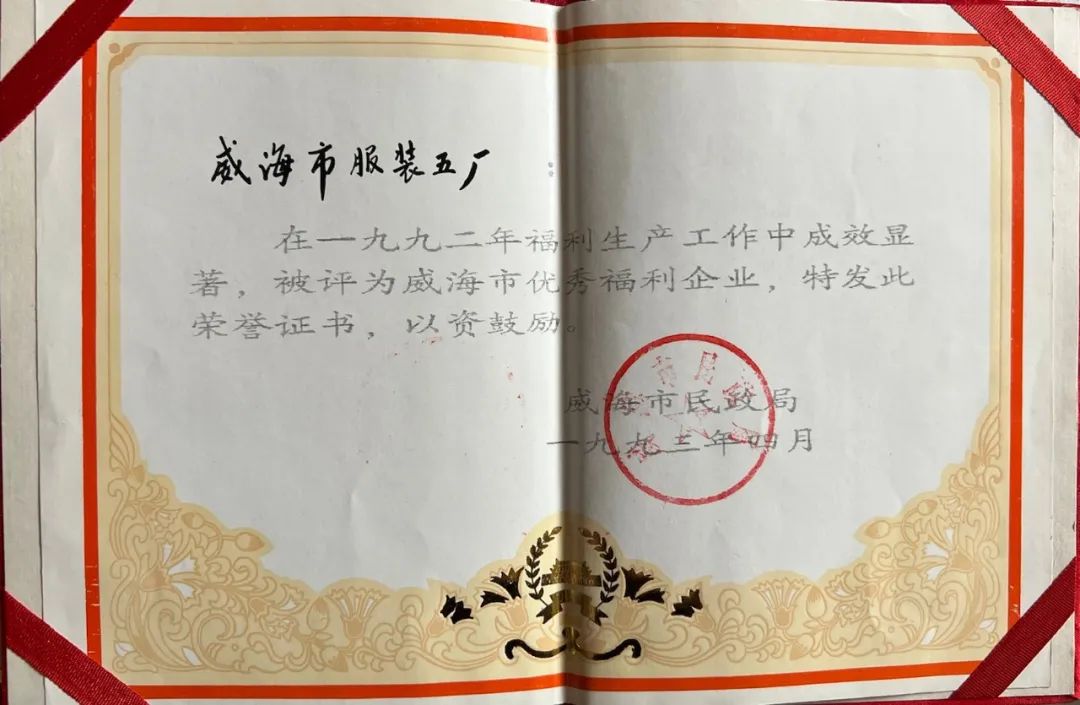 威海市服装五厂
在一九九二年福利生产工作中成效显
著，被评为威海市优秀福利企业，特发此
荣誉证书，以资鼓励。
威海市民政局
一九九三年四月